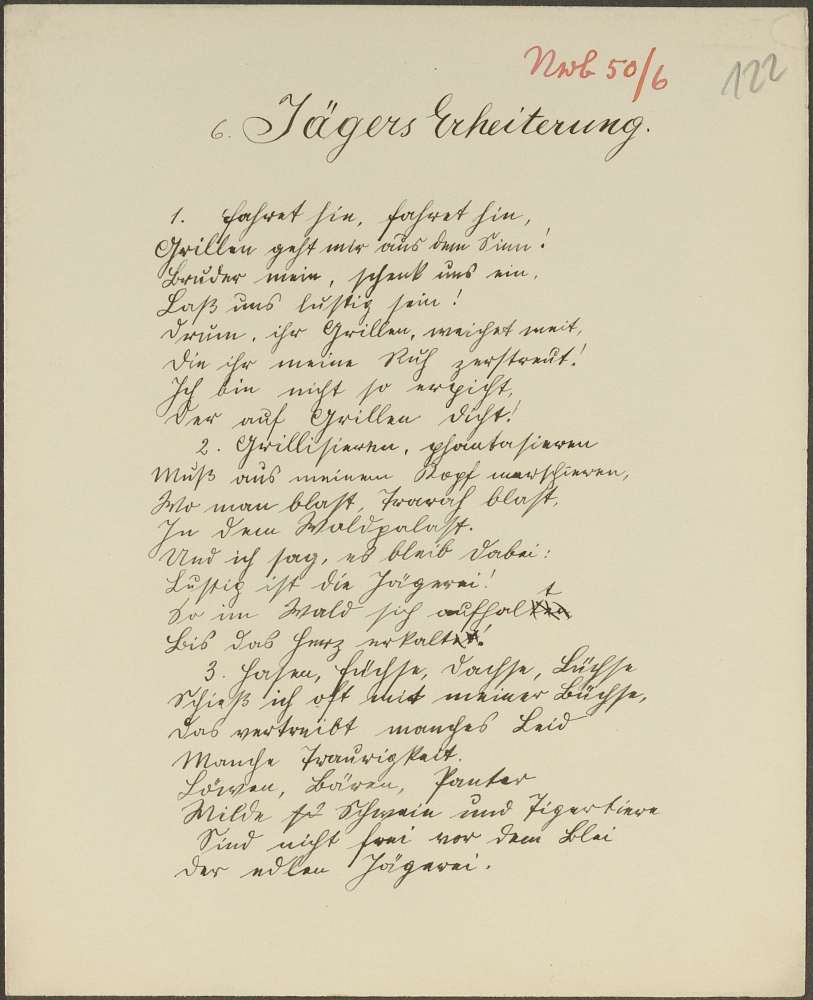 Nwb 50/6
122
6. Jägers Erheiterung.
1. Fahret hin, fahret hin,
Grillen geht mir aus dem Sinn!
Bruder mein, schenk uns ein,
Laß uns lustig sein!
Drum, ihr Grillen, weichet weit,
Die ihr meine Ruh zerstreut!
Ich bin nicht so erpicht,
Der auf Grillen dicht!
2. Grillisieren, phantasieren
Muß aus meinem Kopf marschieren,
Wo man blast, Trarah blast,
In dem Waldpalast.
Und ich sag, es bleib dabei:
Lustig ist die Jägerei!
So im Wald sich aufhalt
Bis das Herz erkalt!
3. Hasen, Füchse, Dachse, Lüchse
Schieß ich oft mit meiner Büchse,
Das vertreibt manches Leid
Manche Traurigkeit.
Löwen, Bären, Panter
Wilde Schwein und Tigertiere
Sind nicht frei vor dem Blei
Der edlen Jägerei.